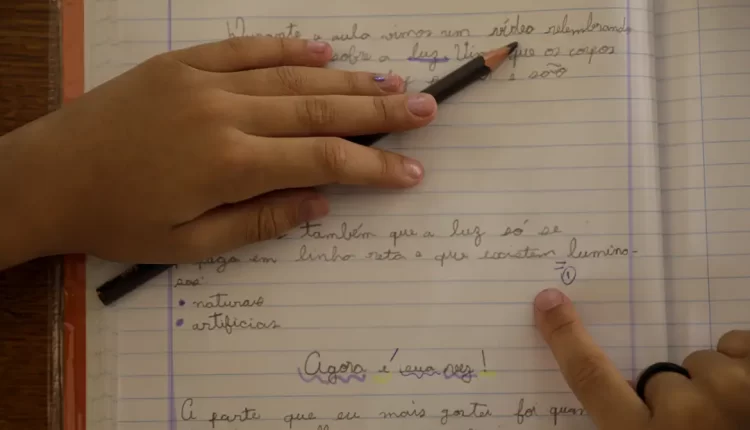 Durante a aula vimos um vídeo relembrando
sobre a luz. que os corpos
são
também que a luz só se
em linha reta e que existem lumino-
sos:
• naturais
• artificias
= ①
Agora é sua vez!
A parte que eu mais gostei foi quan